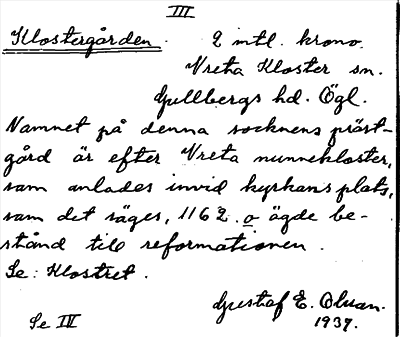 III
Klostergården. 2 mtl. krono.
Vreta Kloster sn.
Gullbergs hd. Ögl.
Namnet på denna socknens präst-
gård är efter Vreta nunnekloster,
som anlades invid kyrkans plats,
som det säges, 1162 o ägde be-
stånd till reformationen.
Se: Klostret.
Gustaf E. Olsson.
Se IV 1937.